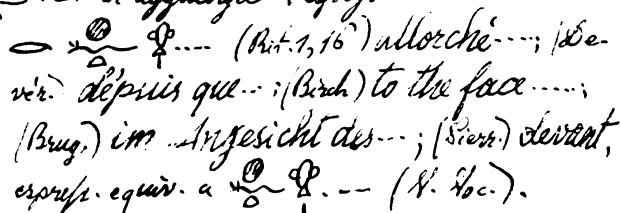 .... (Rit. 1, 16) allorché ....; (De-
vér.) dépuis que...; (Birch) to the face .....;
(Brug.) im Angesicht des...; (Pierr.) devant,
espress. equiv. a .... (V. Voc.).